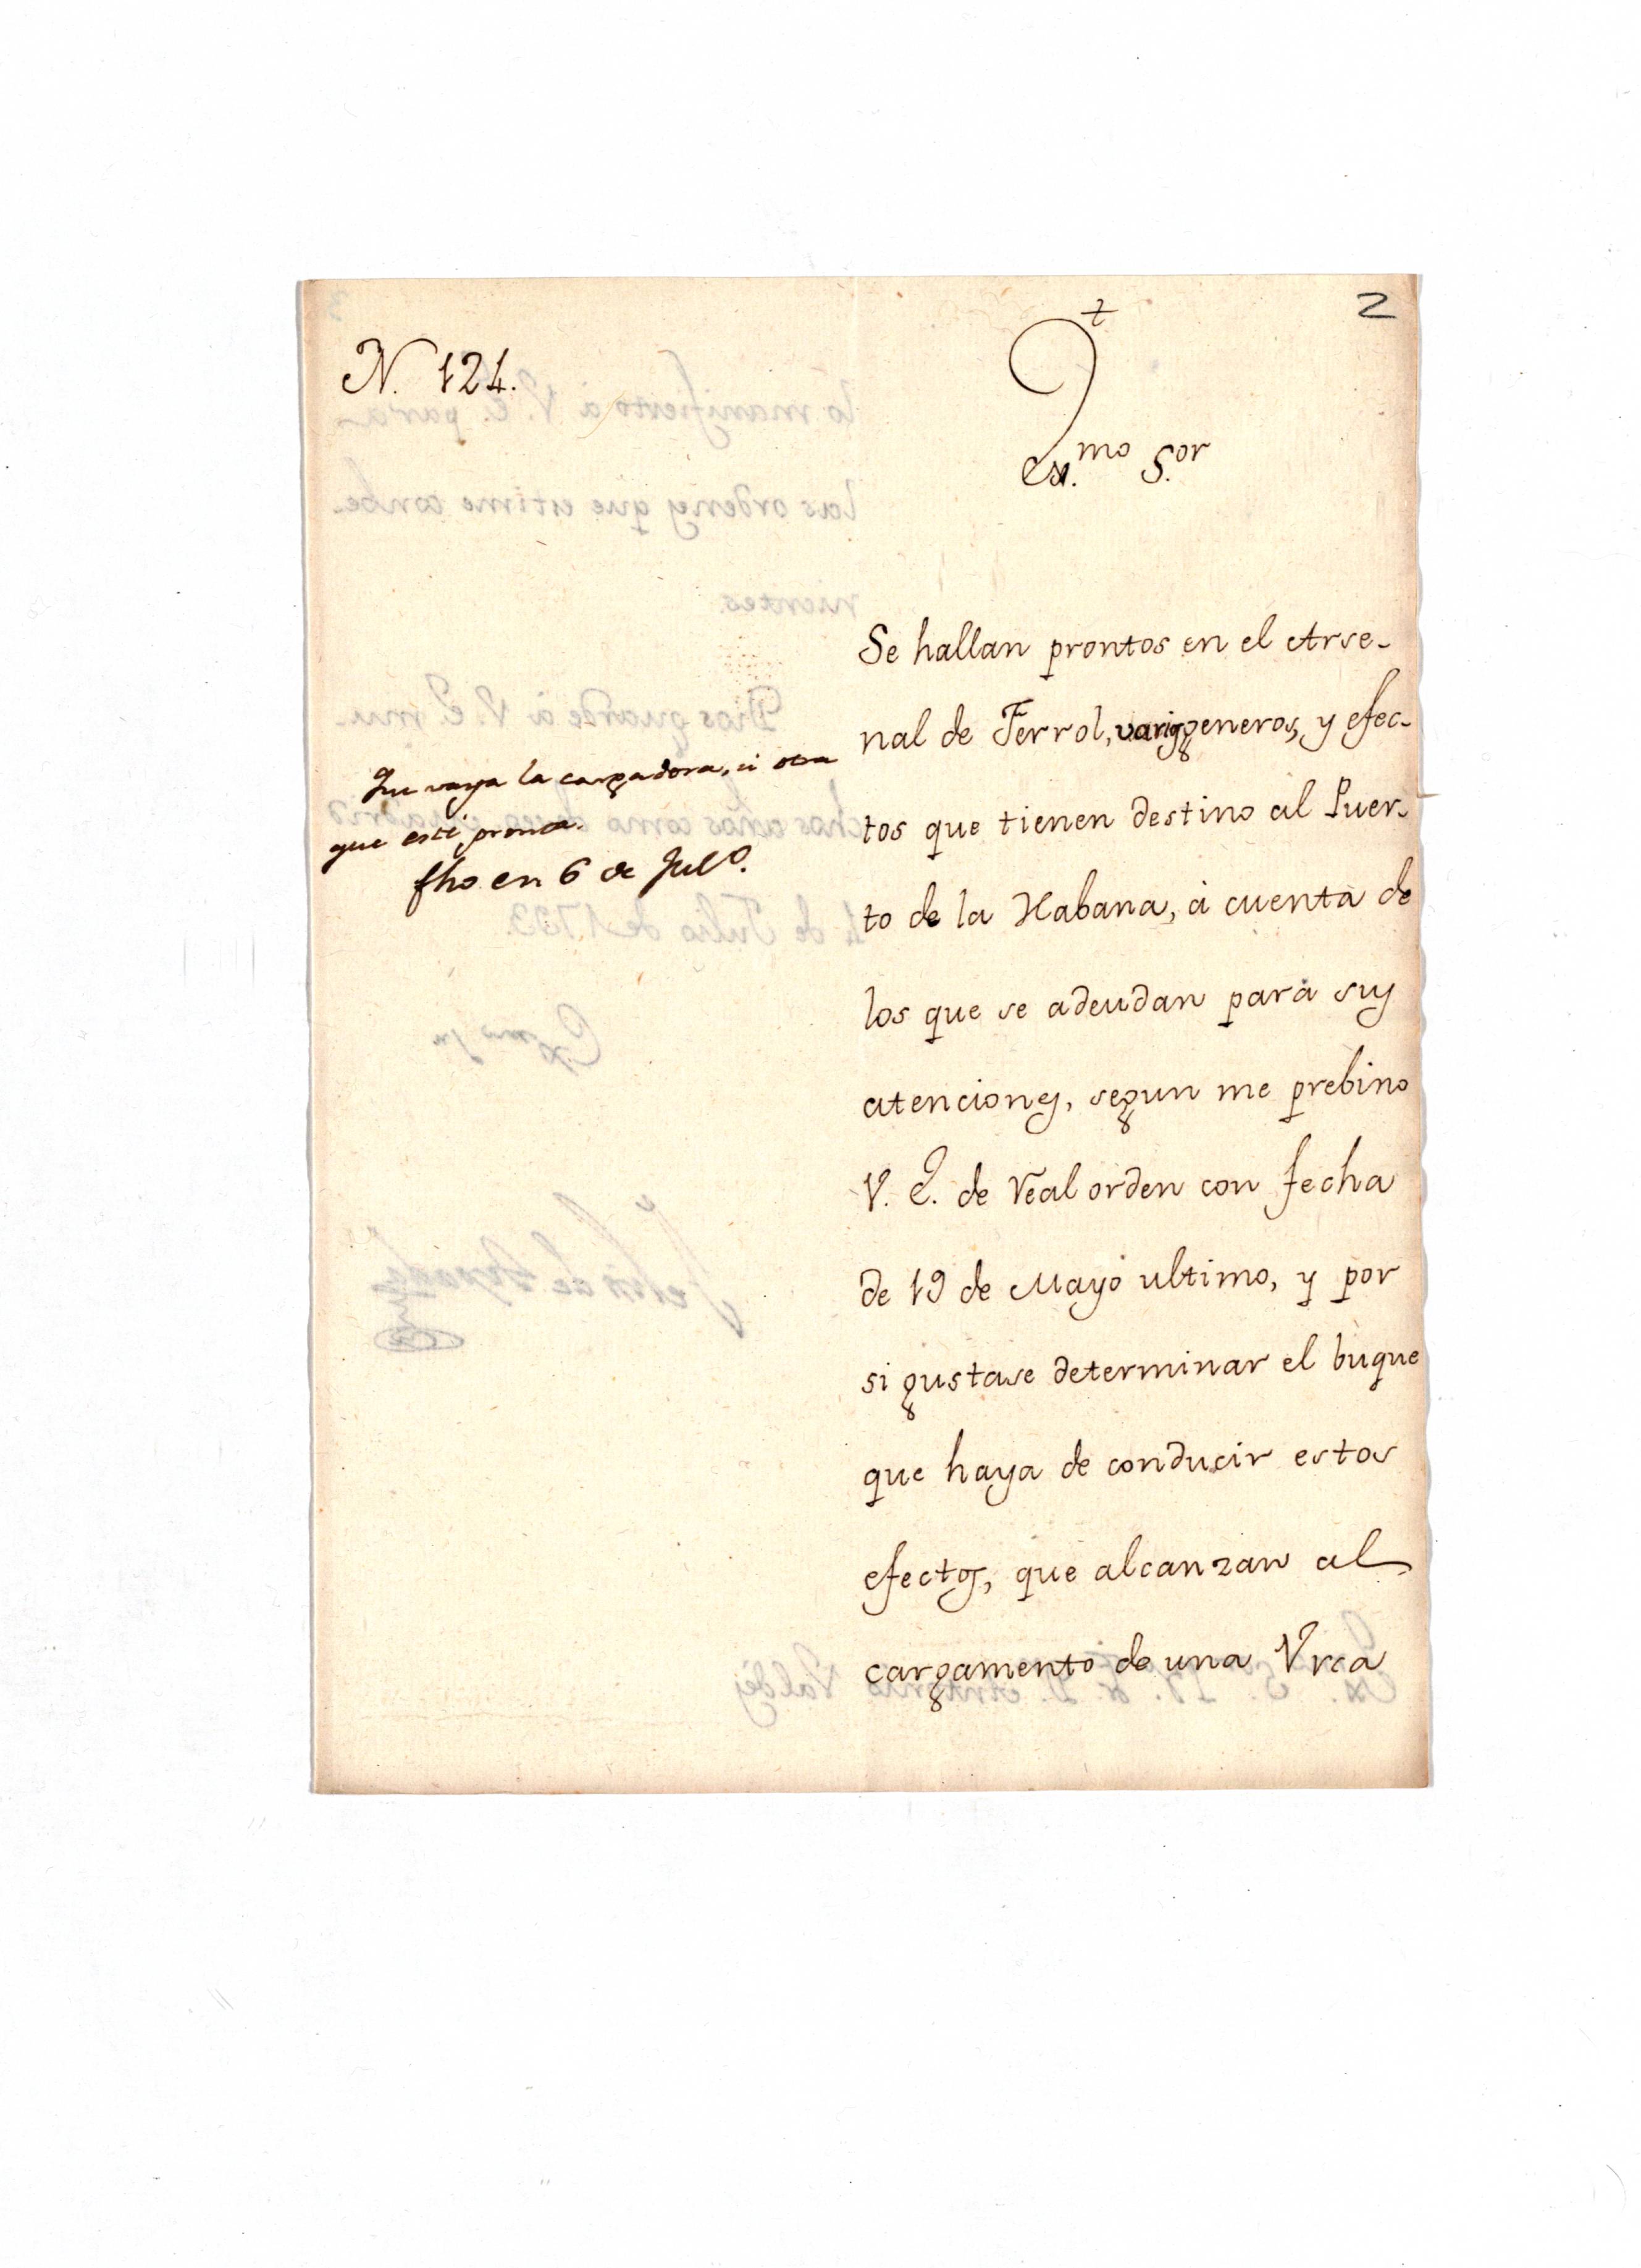 2
N. 121.
Ex.mo S.or
Se hallan prontos en el Arse-
nal de Ferrol, varios generos, y efec-
tos que tienen destino al Puer-
to de la Habana, à cuenta de
los que se adeudan para sus
atenciones, segun me prebino
V. E. de Real orden con fecha
de 19 de Mayo ultimo, y por
si gustase determinar el buque
que haya de conducir estos
efectos, que alcanzan al
cargamento de una Vrca
Que vaya la cargadora, ù otra
que esté pronta.
fho en 6 de Jul.o